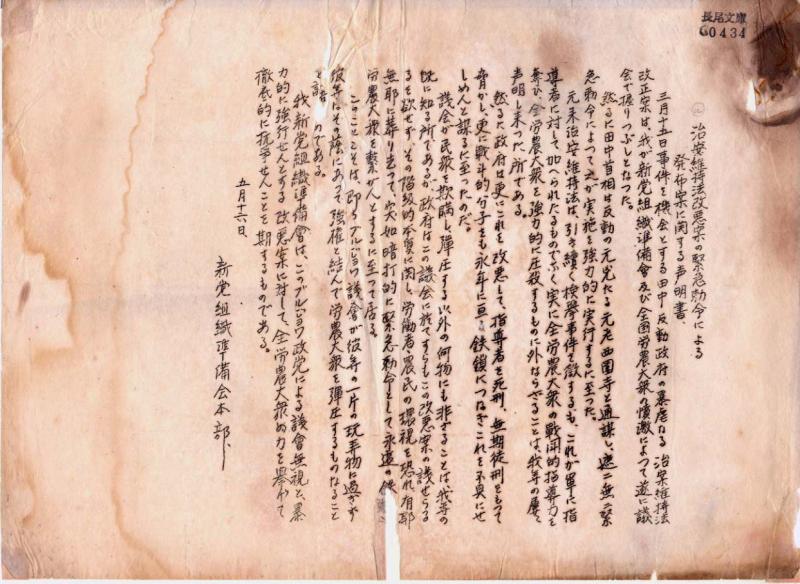 長尾文庫
60434
治安維持法改悪案の緊急勅令による
発布案に関する声明書
三月十五日事件を機会とする田中反動政府の暴虐なる治安維持法
改正案は、我が新党組織準備會及び全国労農大衆の憤激によつて遂に議
会で握りつぶしとなつた。
然るに田中首相は反動の元兇たる元老西園寺と通謀し、遮二無二緊
急勅令によつて之が実施を強力的に実行するに至つた。
元来治安維持法は、引き續く検挙事件を徴するも、これが単に指
導者に対して加へられたるものでなく実に全労農大衆の戦闘的指導力を
奪ひ、全労農大衆を強力的に圧殺するものに外ならざることは、我等の屡々
声明し来つた所である。
然るに政府は更にこれを改悪して、指導者を死刑、無期徒刑をもつて
脅かし、更に戦斗的分子をも永年に亘る鉄鎖につなぎこれを不具にせ
しめんと謀るに至つたのだ。
議会が民衆を欺瞞し弾圧する以外の何物にも非ざることは、我等の
既に知る所であるが、政府はこの議会に於てすらもこの改悪案の議せらる
るを欲せず、その階級的本質に関し、労働者、農民の環視を恐れ、有耶
無耶に葬り去つて、突如暗打的に緊急勅令として永遠の鉄
労農大衆を繋がんとするに至つて居る。
このことこそは、即ちブルジョワ議会が彼等の一片の玩弄物に過ぎず
彼等はその強にあつて強権と結んで労農大衆を弾圧するものなること
を語 のである。
我新党組織準備會は、このブルジョワ政党による議會無視と、暴
力的に強行せんとする改悪案に対して、全労農大衆の力を挙げて
徹底的に抗争せんことを期するものである。
五月十六日
新党組織準備会本部